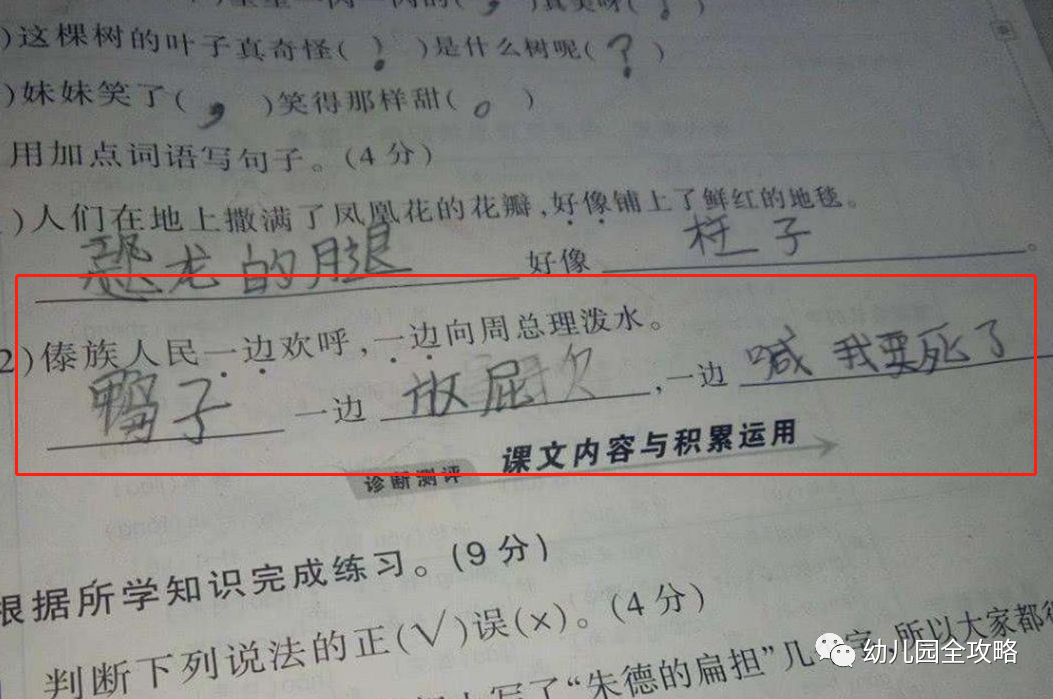 )真美呀(!)
)这棵树的叶子真奇怪(!)是什么树呢(?)
)妹妹笑了(,)笑得那样甜(。)
用加点词语写句子。(4分)
)人们在地上撒满了凤凰花的花瓣,好像铺上了鲜红的地毯。
恐龙的腿 好像 柱子。
2)傣族人民一边欢呼,一边向周总理泼水。
鸭子 一边 放屁,一边 喊我要死了
诊断测评 课文内容与积累运用
根据所学知识完成练习。(9分)
判断下列说法的正(√)误(×)。(4分)
写了“朱德的扁担”几个字,所以大家都
幼儿园全攻略